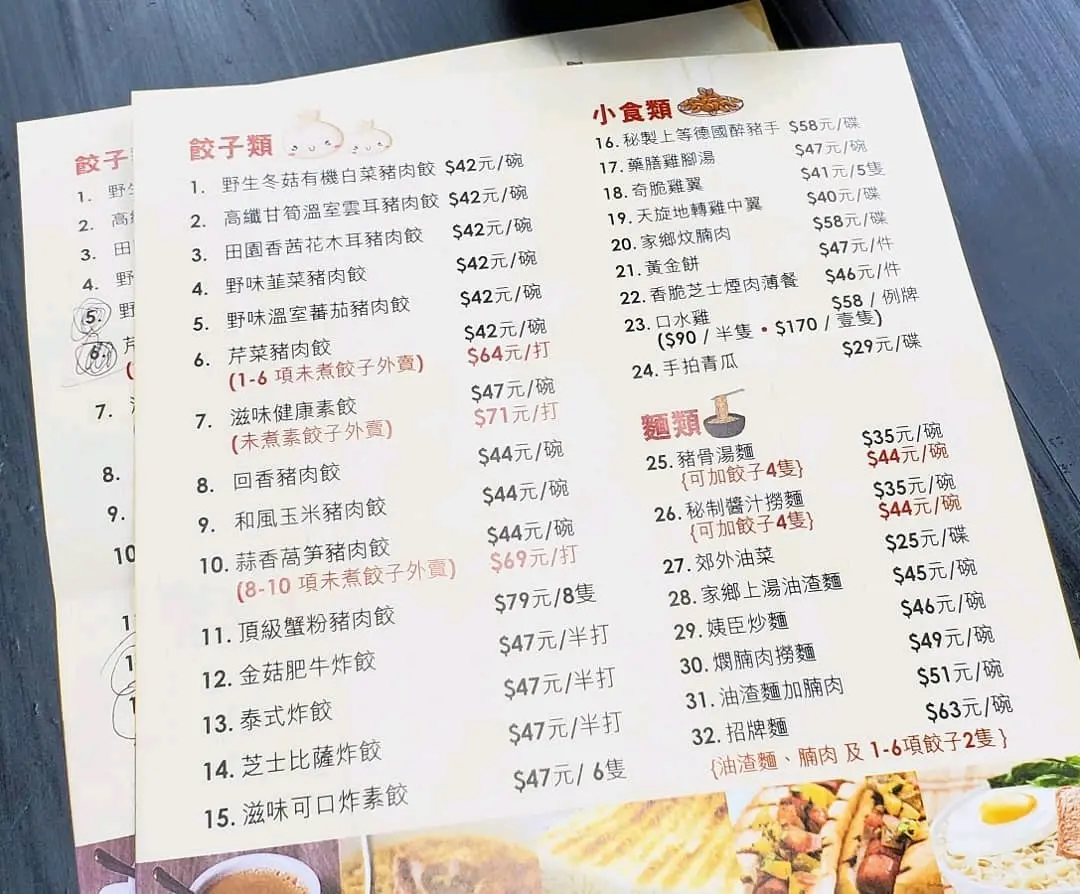 餃子
1. 野
2. 高
3. 田
4. 野
5. 野
6. 芹
7.
8.
9.
10
餃子類
1. 野生冬菇有機白菜豬肉餃 $42元/碗
2. 高纖甘筍溫室雲耳豬肉餃 $42元/碗
3. 田園香茜花木耳豬肉餃 $42元/碗
4. 野味韮菜豬肉餃 $42元/碗
5. 野味溫室蕃茄豬肉餃 $42元/碗
6. 芹菜豬肉餃 $42元/碗
(1-6 項未煮餃子外賣) $64元/打
7. 滋味健康素餃 $47元/碗
(未煮素餃子外賣) $71元/打
8. 回香豬肉餃 $44元/碗
9. 和風玉米豬肉餃 $44元/碗
10. 蒜香萵笋豬肉餃 $44元/碗
(8-10 項未煮餃子外賣) $69元/打
11. 頂級蟹粉豬肉餃 $79元/8隻
12. 金菇肥牛炸餃 $47元/半打
13. 泰式炸餃 $47元/半打
14. 芝士比薩炸餃 $47元/半打
15. 滋味可口炸素餃 $47元/ 6隻
小食類
16. 秘製上等德國醉豬手 $58元/碟
17. 藥膳雞腳湯 $47元/碗
18. 奇脆雞翼 $41元/5隻
19. 天旋地轉雞中翼 $40元/碟
20. 家鄉炆腩肉 $58元/碟
21. 黃金餅 $47元/件
22. 香脆芝士煙肉薄餐 $46元/件
23. 口水雞 $58 / 例牌
($90 / 半隻 • $170 / 壹隻)
24. 手拍青瓜 $29元/碟
麵類
25. 豬骨湯麵 $35元/碗
{可加餃子4隻} $44元/碗
26. 秘制醬汁撈麵 $35元/碗
{可加餃子4隻} $44元/碗
27. 郊外油菜 $25元/碟
28. 家鄉上湯油渣麵 $45元/碗
29. 姨臣炒麵 $46元/碗
30. 燜腩肉撈麵 $49元/碗
31. 油渣麵加腩肉 $51元/碗
32. 招牌麵 $63元/碗
{油渣麵、腩肉 及 1-6項餃子2隻 }